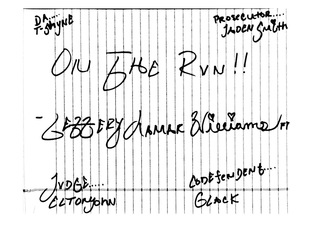 DA.....
T-SHYNE
PROSECUTOR....
JADEN SMITH
ON THE RUN!!
LAMAR WILLIAMS
JUDGE.....
ELTON JOHN
CODEFENDENT....
6LACK